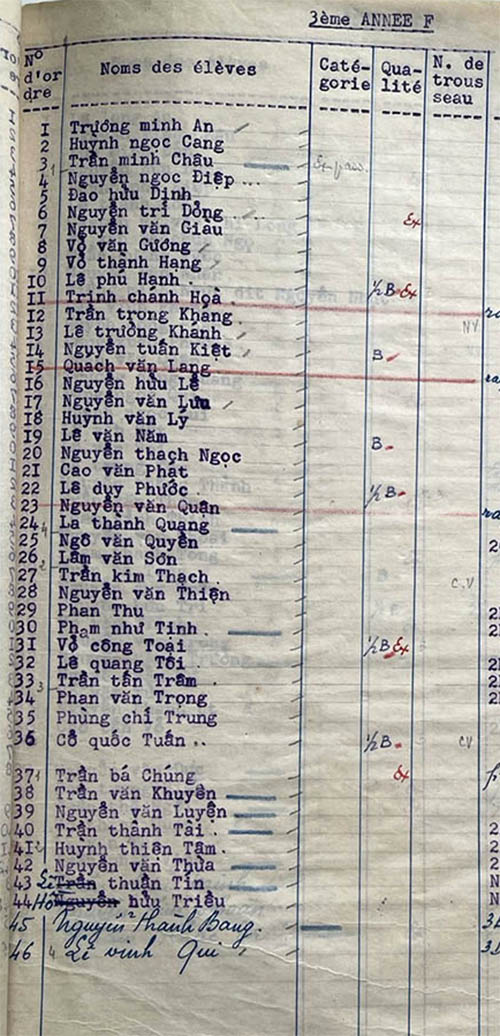 3ème ANNEE F
N° d'or dre Noms des élèves Caté- gorie Qua- lité N. de trous seau
1 Trương minh An
2 Huỳnh ngọc Cang
3 Trần minh Châu
4 Nguyễn ngọc Điệp ...
5 Đao hữu Dinh
6 Nguyễn tri Dông . Ex
7 Nguyễn văn Giàu
8 Võ văn Gương
9 Võ thành Hang
10 Lê phú Hạnh . ½B Ex
11 Trinh chánh Hoà .
12 Trần trọng Khang NV
13 Lê trương Khánh
14 Nguyễn tuấn Kiệt B
15 Quach văn Lang
16 Nguyễn hữu Lê
17 Nguyễn văn Lưu
18 Huỳnh văn Lý
19 Lê văn Năm
20 Nguyễn thạch Ngọc B
21 Cao văn Phát
22 Lê duy Phước . ½B
23 Nguyễn văn Quận
24 La thành Quang
25 Ngô văn Quyền
26 Lâm văn Sơn
27 Trần kim Thạch . C.V
28 Nguyễn văn Thiện
29 Phan Thu
30 Phạm như Tinh .
31 Võ công Toại ½B Ex
32 Lê quang Tôi .
33 Trần tấn Trâm .
34 Phan văn Trọng
35 Phùng chí Trung
36 Cô quốc Tuấn .. ½B CV
37 Trần bá Chúng Ex
38 Trần văn Khuyên
39 Nguyễn văn Luyện
40 Trần thành Tài .
41 Huynh thiện Tâm .
42 Nguyễn văn Thừa
43 Lê Trần thuận Tín
44 Hồ Nguyễn hữu Triều
45 Nguyễn thành Bang .
46 Lê vinh Qui